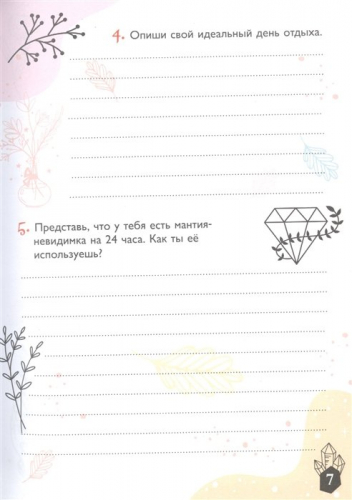 4. Опиши свой идеальный день отдыха.
5. Представь, что у тебя есть мантия-
невидимка на 24 часа. Как ты её
используешь?
7